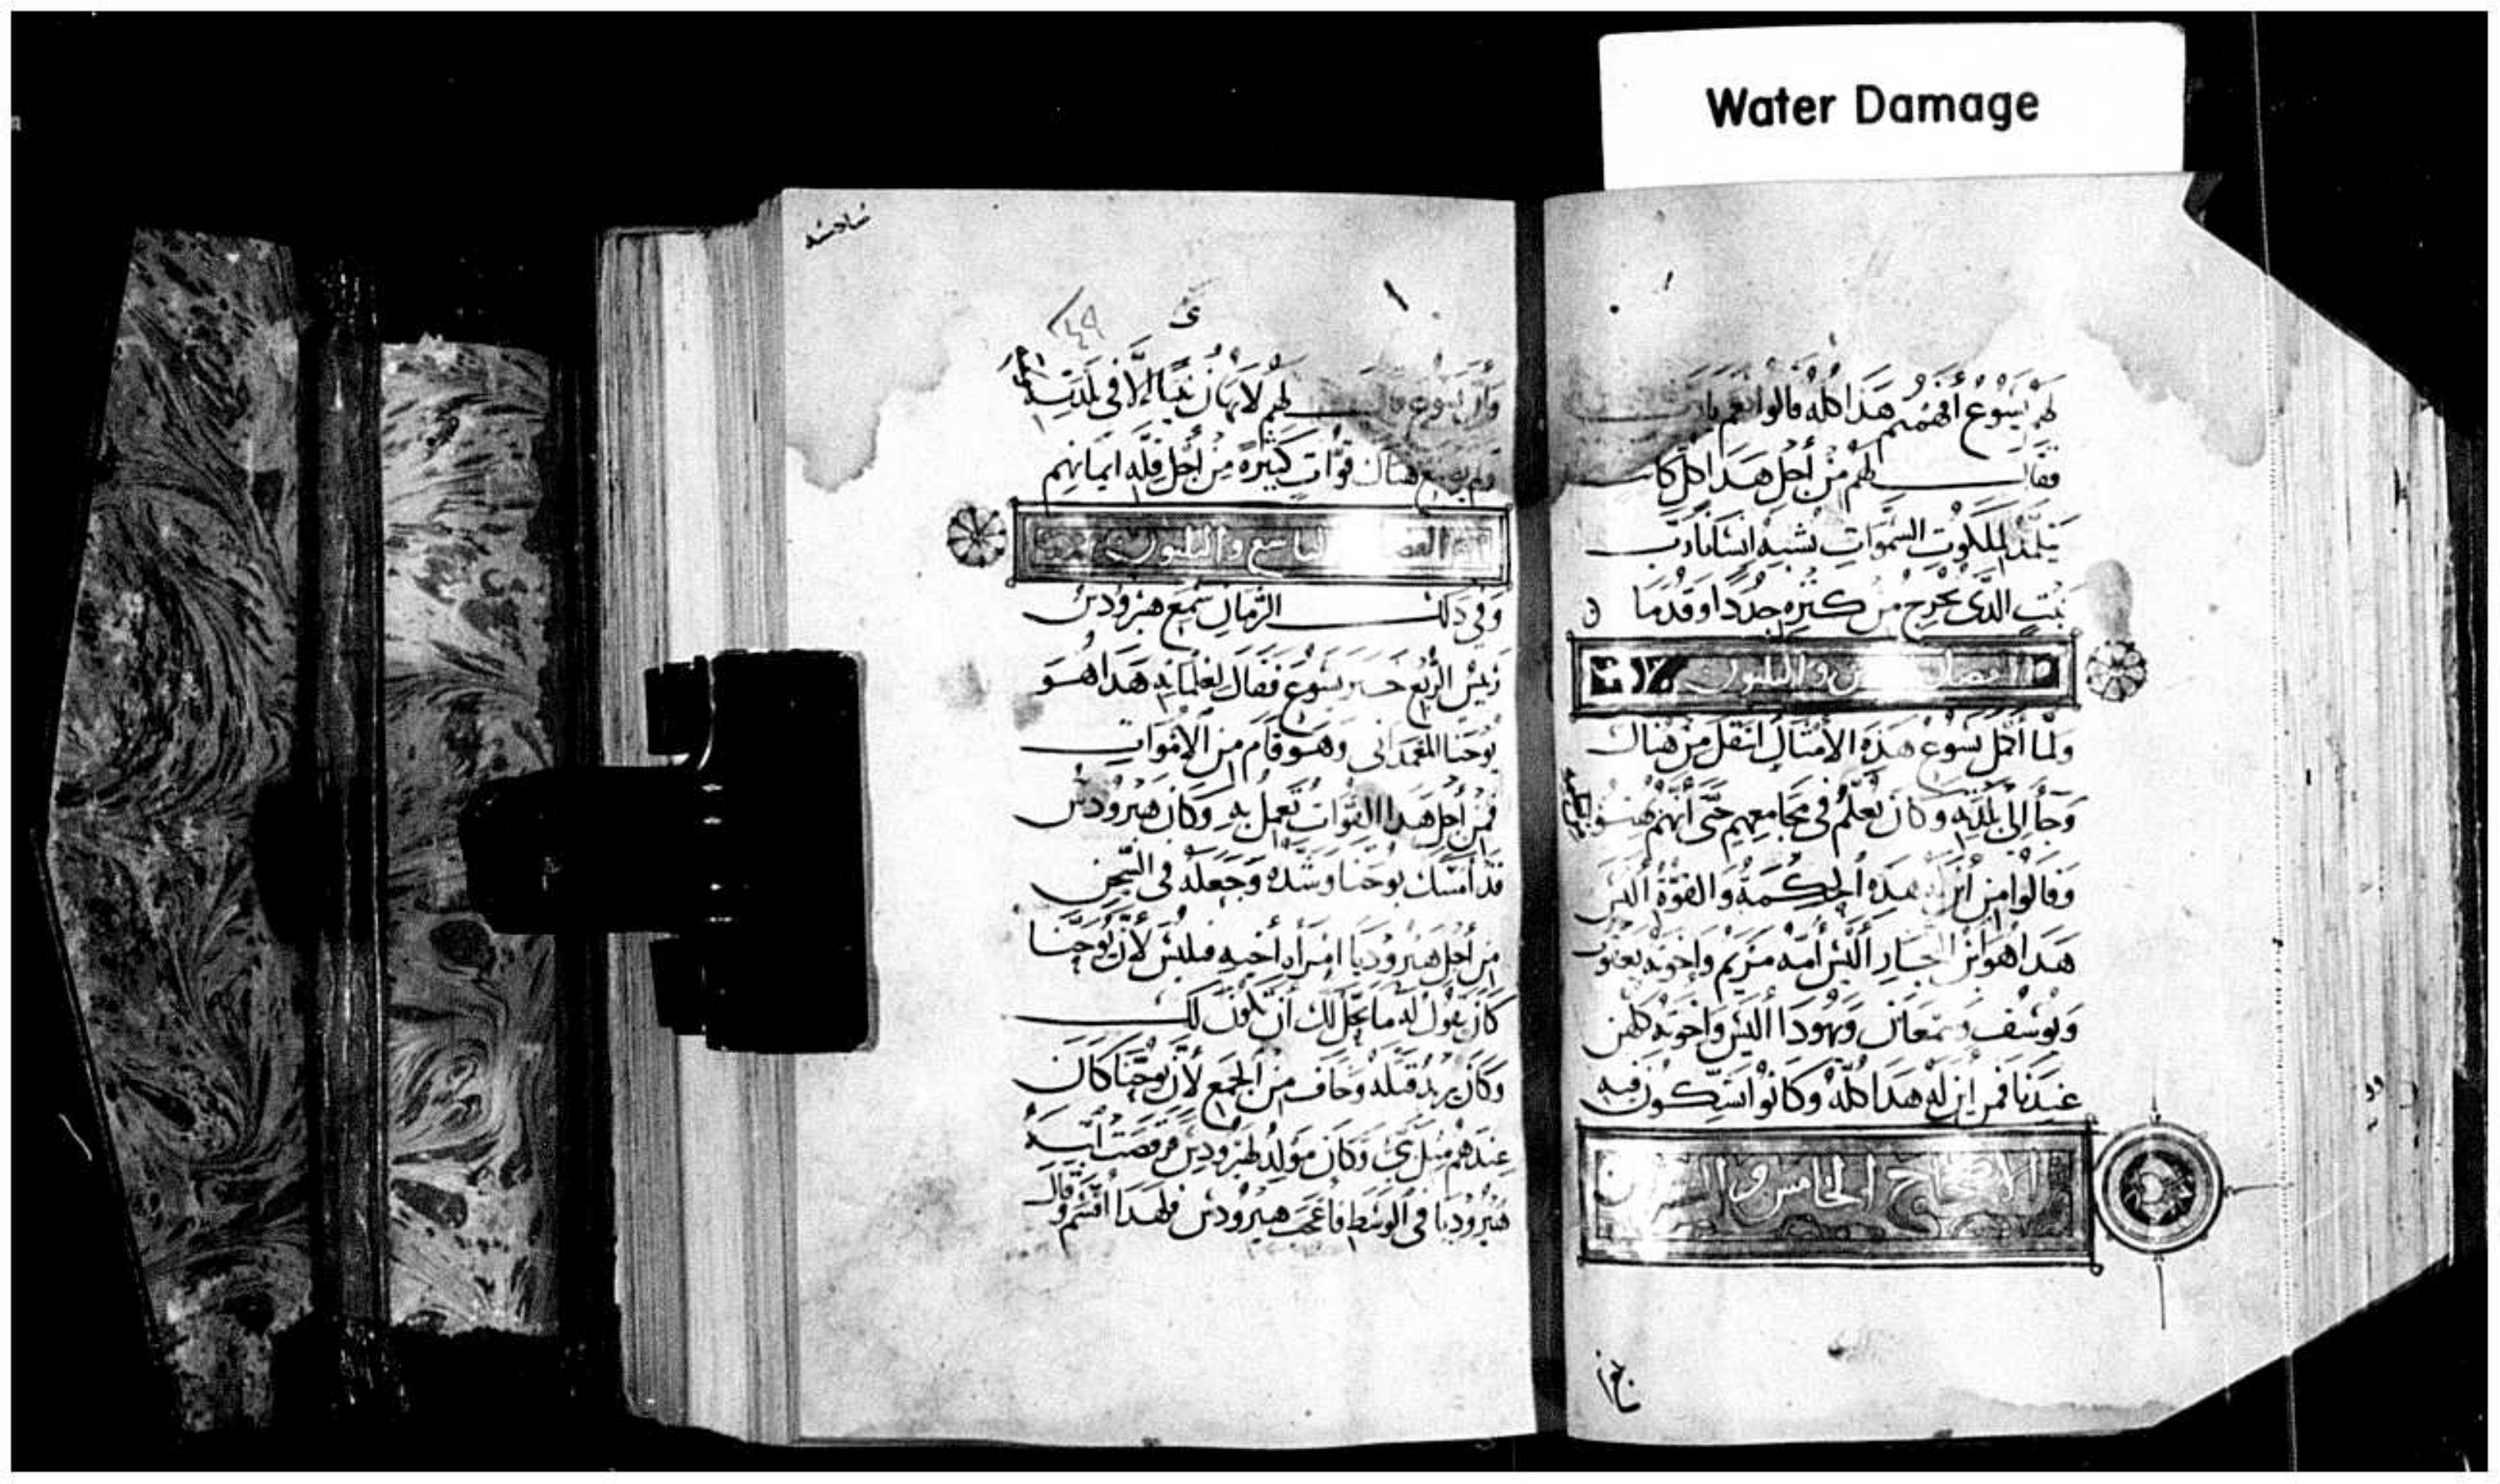 Water Damage
لهم يسوع أفهمتم هذا كله قالوا نعم يا رب
فقال لهم من أجل هذا كل كاتب
يتلمذ لملكوت السموات يشبه انسانا رب
بيت الذى يخرج من كنزه جددا وقدما
الفصل والثلثون
ولما أكمل يسوع هذه الأمثال انتقل من هناك
وجأ إلى بلدته وكان يعلم فى مجامعهم حتى أنهم
وقالوا من أين له هذه الحكمة والقوة أليس
هذا هو ابن النجار أليس أمه مريم واخوته يعقوب
ويوسف وسمعان ويهودا أليس واخوته كلهن
عندنا فمن اين له هذا كله وكانوا يشكون فيه
الخامس و
سادسه
٢٤٩
وأن يسوع قال لهم لا يهان نبيا إلا فى بلدته
ولم يصنع هناك قوات كثيرة من أجل قلة ايمانهم
الفصل التاسع والثلثون
وفى ذلك الزمان سمع هيرودس
رئيس الربع خبر يسوع فقال لغلمانه هذا هو
يوحنا المعمدانى وهو قام من الاموات
فمن أجل هذا القوات تعمل به وكان هيرودس
قد أمسك يوحنا وشده وجعله فى السجن
من أجل هيروديا امرأه أخيه فيلبس لأن يوحنا
كان يقول له ما يحل لك أن تكون لك
وكان يريد قتله وخاف من الجمع لأن يوحنا كان
عندهم مثل نبى وكان مولد لهيرودس فرقصت ابنه
هيروديا فى الوسط فأعجب هيرودس فلهذا أقسم وقال